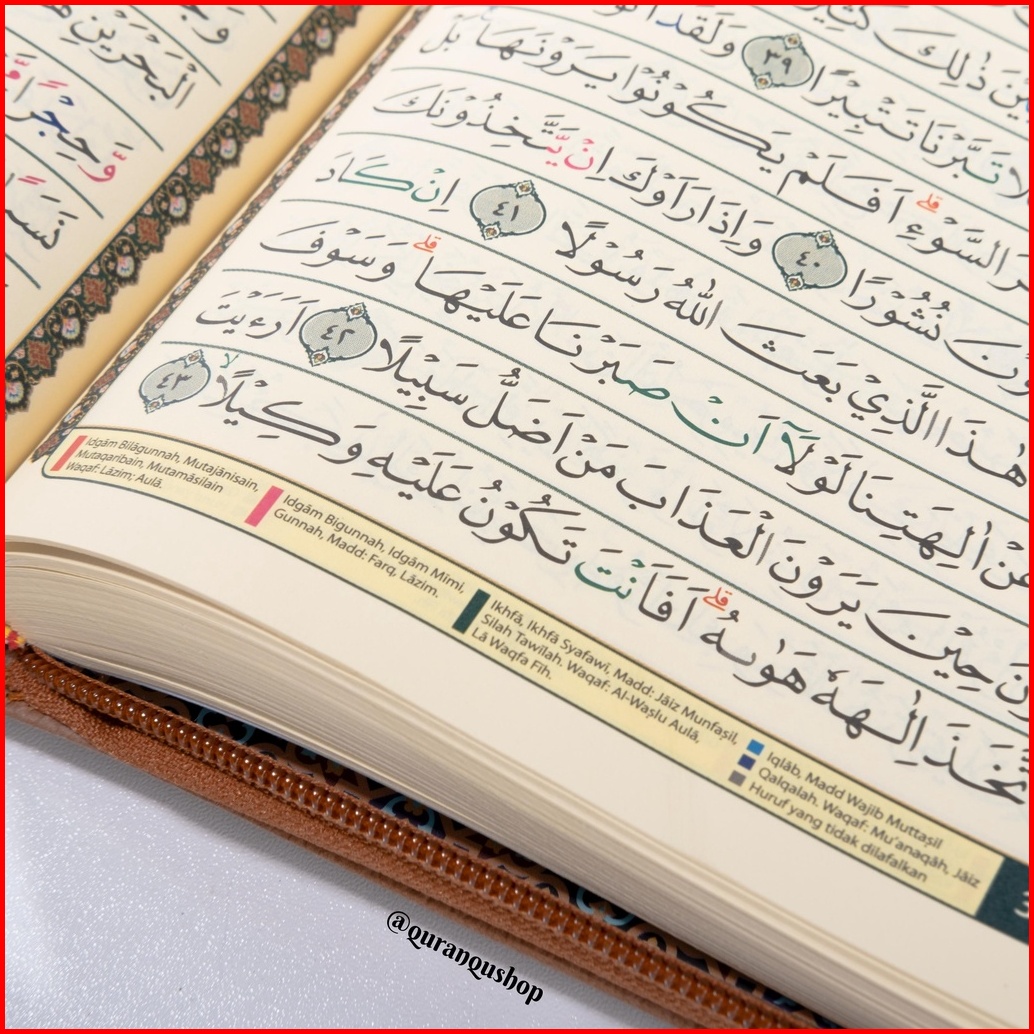 ذٰلِكَ
تَبَّرْنَا تَتْبِيْرًا ٣٩ وَلَقَدْ
السَّوْءِۗ اَفَلَمْ يَكُوْنُوْا يَرَوْنَهَاۚ بَلْ
نُشُوْرًا ٤٠ وَاِذَا رَاَوْكَ اِنْ يَّتَّخِذُوْنَكَ
هٰذَا الَّذِيْ بَعَثَ اللّٰهُ رَسُوْلًا ٤١ اِنْ كَادَ
عَنْ اٰلِهَتِنَا لَوْلَآ اَنْ صَبَرْنَا عَلَيْهَاۗ وَسَوْفَ
حِيْنَ يَرَوْنَ الْعَذَابَ مَنْ اَضَلُّ سَبِيْلًا ٤٢ اَرَءَيْتَ
اِلٰهَهٗ هَوٰىهُۗ اَفَاَنْتَ تَكُوْنُ عَلَيْهِ وَكِيْلًاۙ ٤٣
الْبَحْرَيْنِ
وَّحِجْرًا
Idgām Bilāgunnah, Mutajānisain,
Mutaqaribain, Mutamāsilain
Waqaf: Lāzim; Aulā.
Idgām Bigunnah, Idgām Mimi,
Gunnah, Madd: Farq, Lāzim.
Ikhfā, Ikhfā Syafawī, Madd: Jāiz Munfaṣil,
Silah Tawīlah. Waqaf: Al-Waṣlu Aulā,
Lā Waqfa Fih.
Iqlāb, Madd Wajib Muttaṣil
Qalqalah. Waqaf: Mu'anaqāh, Jāiz
Huruf yang tidak dilafalkan
@quranqushop